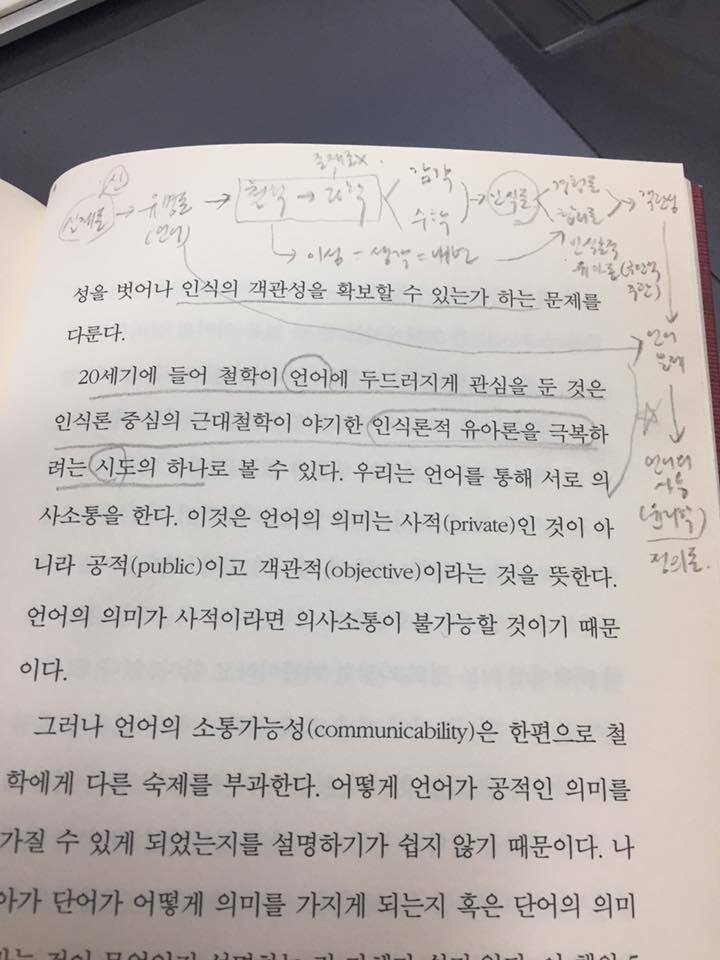 신
실재론 → 유명론 → 철학 → 과학 < 감각 → 인식론 < 경험론 → 객관성
(언어) 수학 합리론
→ 이성 - 생각 = 내면 인식론적
유아론
주관)
성을 벗어나 인식의 객관성을 확보할 수 있는가 하는 문제를
다룬다.
언어
문제
20세기에 들어 철학이 언어에 두드러지게 관심을 둔 것은
인식론 중심의 근대철학이 야기한 인식론적 유아론을 극복하
려는 시도의 하나로 볼 수 있다. 우리는 언어를 통해 서로 의
사소통을 한다. 이것은 언어의 의미는 사적(private)인 것이 아
니라 공적(public)이고 객관적(objective)이라는 것을 뜻한다.
언어의 의미가 사적이라면 의사소통이 불가능할 것이기 때문
이다.
언어의
사용
(윤리학)
정의론.
그러나 언어의 소통가능성(communicability)은 한편으로 철
학에게 다른 숙제를 부과한다. 어떻게 언어가 공적인 의미를
가질 수 있게 되었는지를 설명하기가 쉽지 않기 때문이다. 나
아가 단어가 어떻게 의미를 가지게 되는지 혹은 단어의 의미